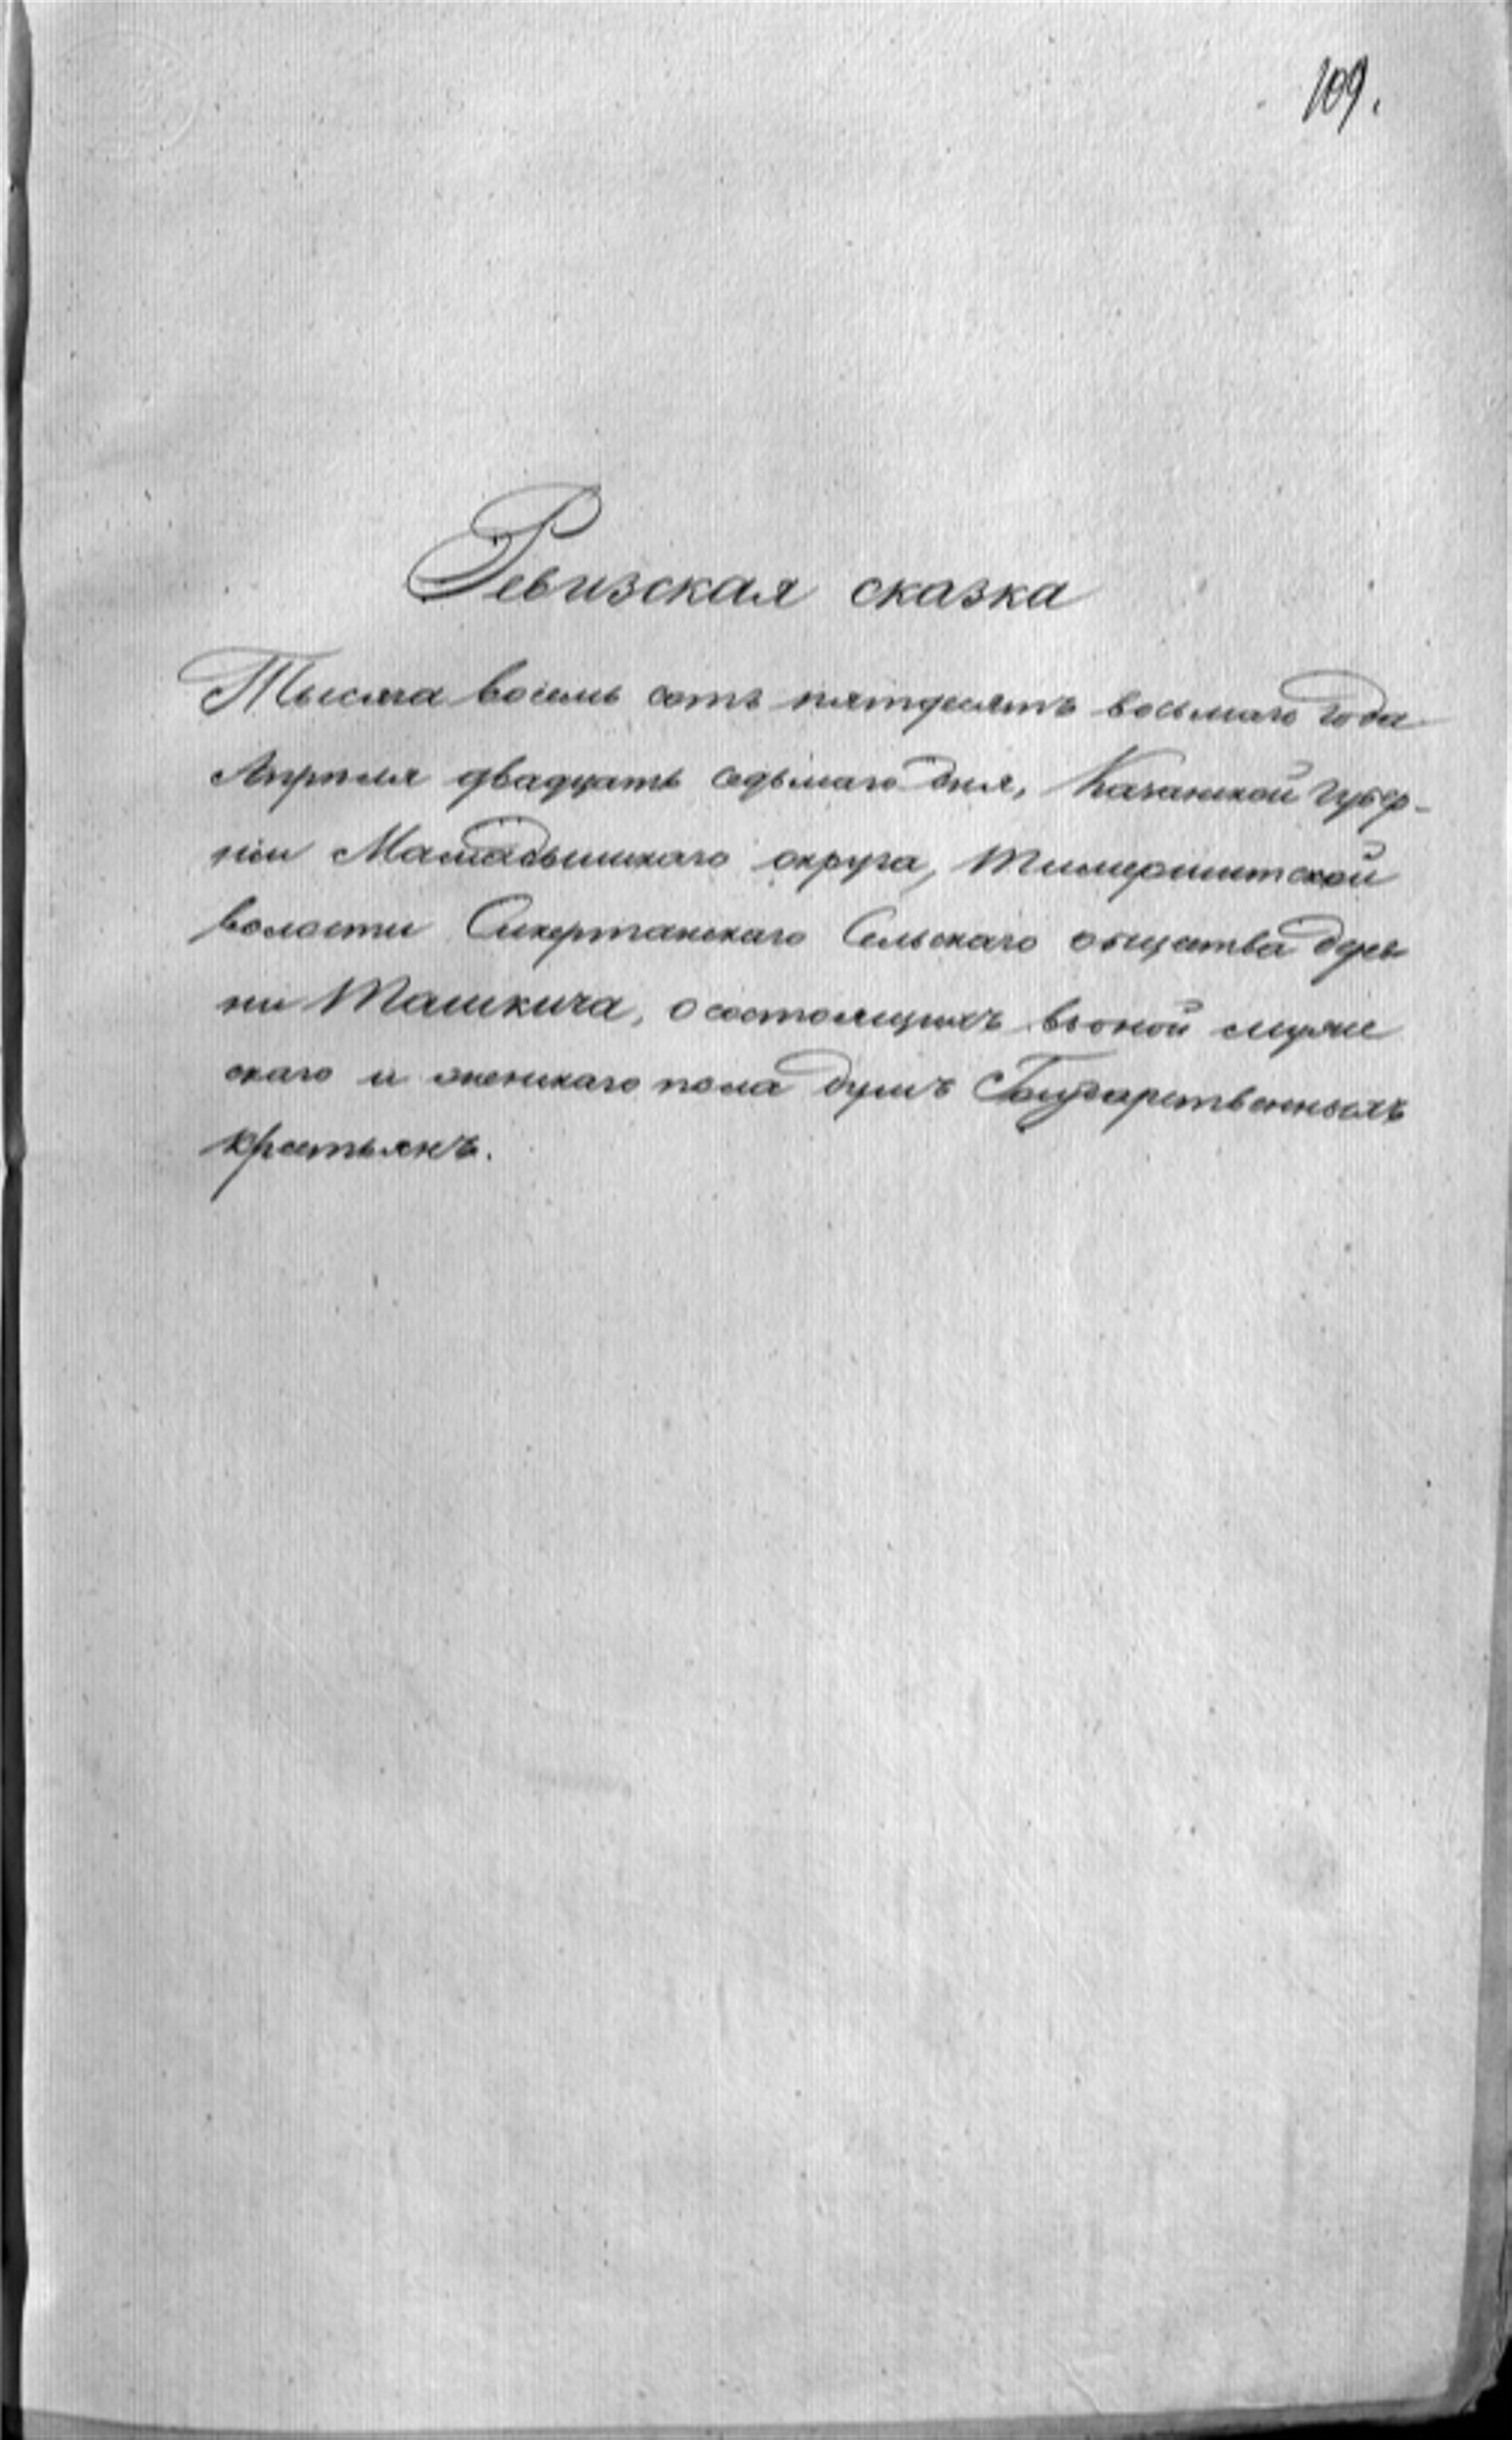 109.
Ревизская сказка
Тысяча восемь сотъ пятьдесятъ восьмаго года
Апреля двадцать седьмаго дня, Казанской губер-
ніи Мамадышскаго округа,
волости Сикертанскаго Сельскаго общества дерев
ни Ташкича, о состоящихъ въ оной мужес
скаго и женскаго пола душъ Государственныхъ
крестьянъ.